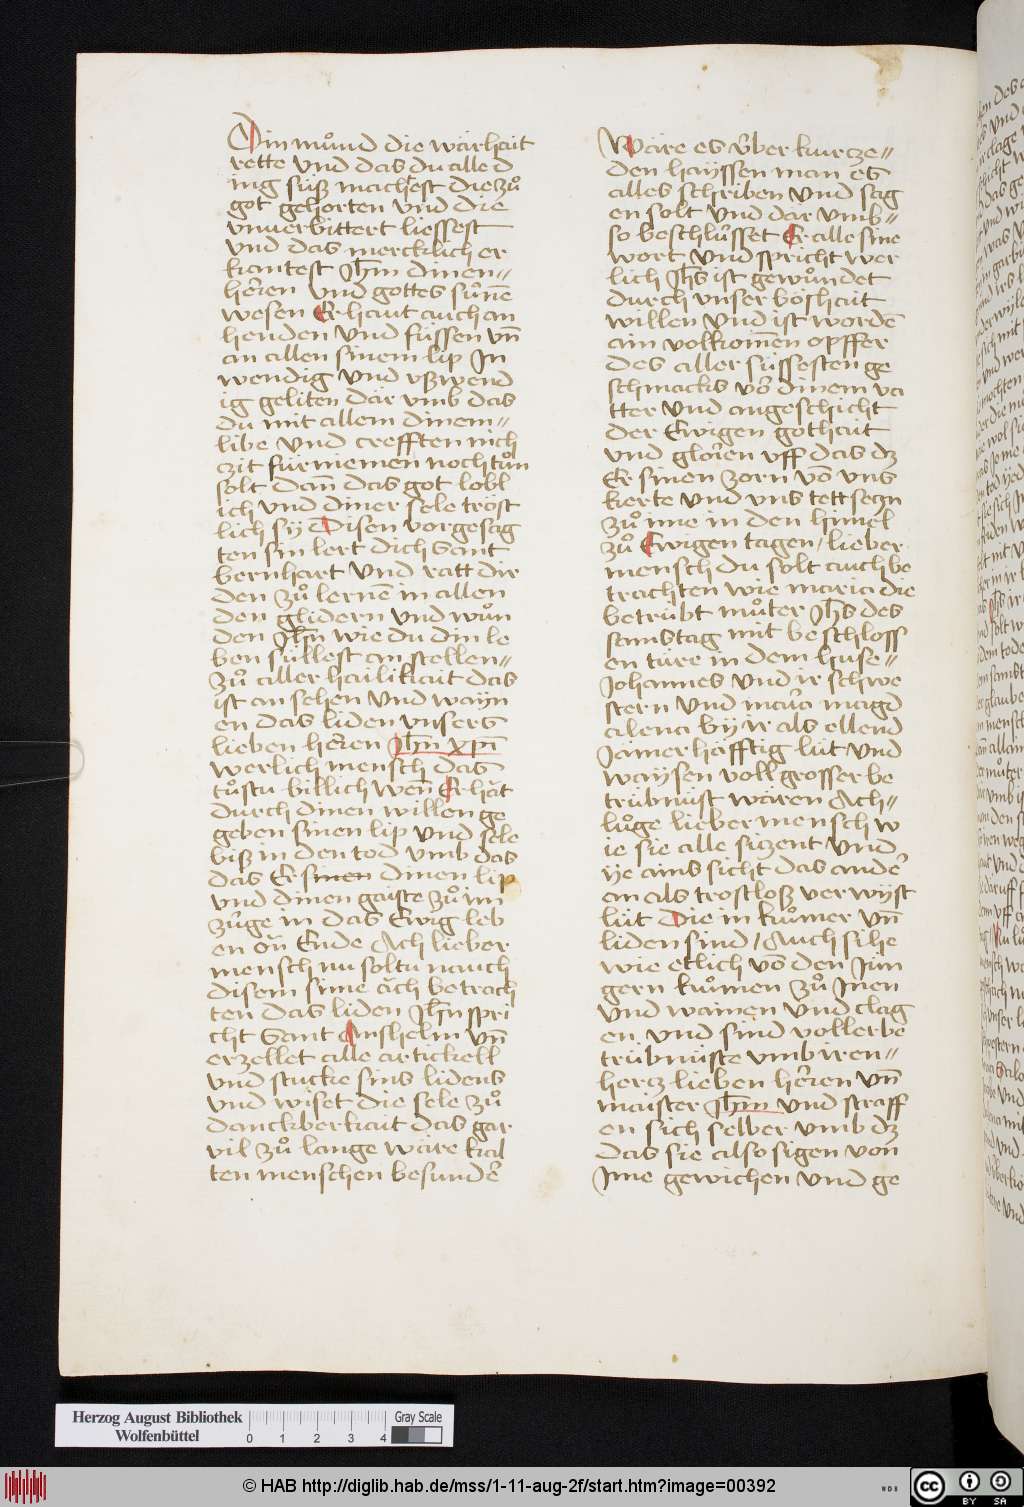 Din můnd die wärhait
rette vnd das du alle d
ing süß machest die zů
got gehorten vnd die
vnuerbittert liessest
vnd das mercklich er
kantest Jhm̄ dinen⸗
heren vnd gottes sünē
wesen Er haut auch an
henden vnd füssen vn̄
an allen sinem lip In
wendig vnd vßwend
ig geliten där vmb das
du mit allem dinem⸗
libe vnd crefften nich
czit für niemen noch tůn
solt dan̄ das got lobl
ich vnd diner sele tröst
lich sÿ Disen vorgesag
ten sin lert dich Sant
bernhart vnd ratt dir
den zů lernē in allen
den glidern vnd wůn
den Jhn̄ wie du din le
ben süllest an stellen⸗
zů aller hailikait das
ist an sehen vnd wayn
en das liden vnsers
lieben heren Jhn̄ xp̄i
werlich mensch das
tůstu billich wen̄ Er hät
durch dinen willen ge
geben sinen lip vnd sele
biß in den tod vmb das
das Er sinen dinen lip
vnd dinen gaiste zů im
züge in das Ewig leb
en on̄ Ende Ach lieber
mensch nu soltu nauch
disem sinne ach betrach
ten das liden Jhn̄ spri
cht Sant Anshelm vn̄
erzellet alle artickell
vnd stucke sins lidens
vnd wiset die sele zů
danckberkait das gar
vil zů lange wäre kal
ten menschen besunder
Wäre es über kurcze⸗
den hayssen man es
alles schriben vnd sag
en solt vnd dar vmb⸗
so beschlüsset Er alle sine
wort vnd spricht wer
lich Jhs̄ ist gewůndet
durch vnser böshait
willen vnd ist wordē
ain volkomen opffer
des aller süssesten ge
schmacks vor dinem va
tter vnd angeschicht
der Ewigen gothait
vnd gloren vff das dz
Er sinen zorn vō vns
kerte vnd vns tett segn
zů ime in den himel
zů Ewigen tagen / lieber
mensch du solt auch be
trachten wie maria die
betrübt můter Jhs̄ des
samstag mit beschloss
en türe in dem huse⸗
Johannes vnd ir schwe
stern vnd maria magd
alena by ir als ellend
Jämerhafftig lüt vnd
waysen voll grosser be
trübnüst wären Ach⸗
lůge lieber mensch w
ie sie alle siczent vnd
ye ains sicht das ander
an als trostloß verwÿst
lüt Die in kumer vn̄
liden sind / Auch sihe
wie etlich vō den Jün
gern kumen zů Jnen
vnd wainen vnd clag
en vnd sind voller be
trübnüste vmb iren⸗
hercz lieben heren vn̄
maister Jhm̄ vnd straff
en sich selber vmb dz
das sie also sigen von
Jme gewichen vnd ge
Herzog August Bibliothek
Wolfenbüttel
0 1 2 3 4
Gray Scale
© HAB http://diglib.hab.de/mss/1-11-aug-2f/start.htm?image=00392
cc BY SA